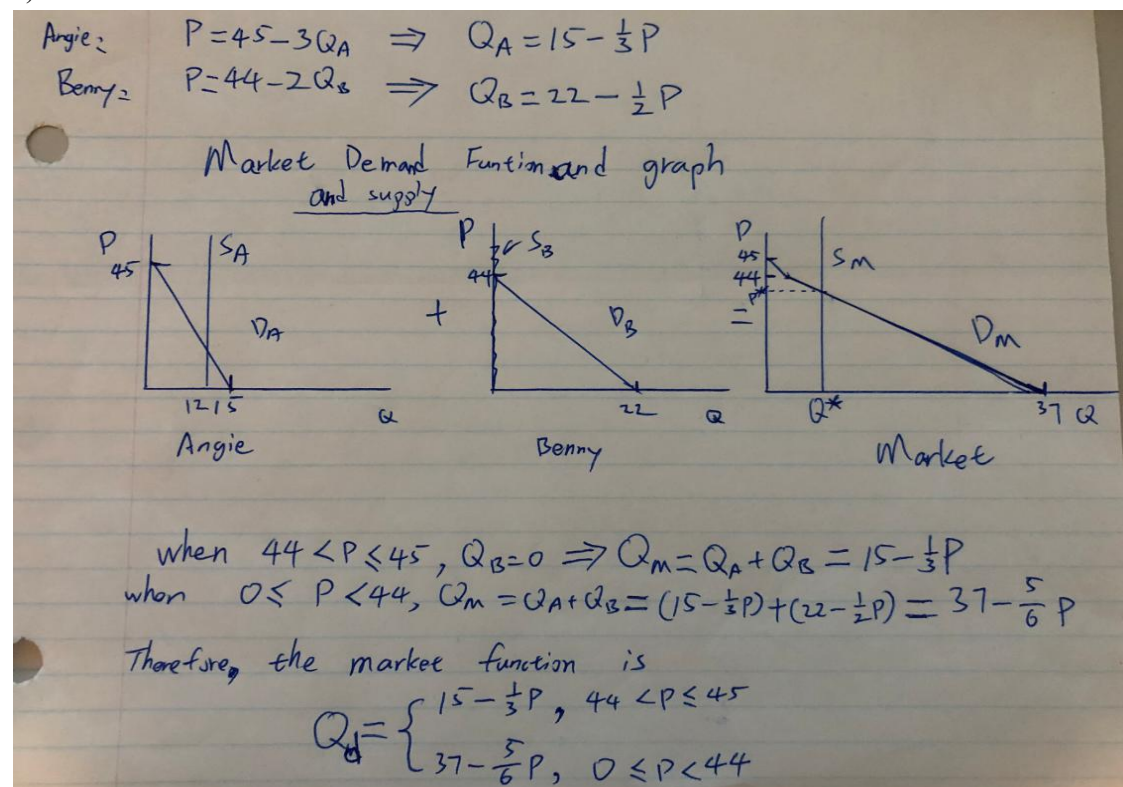 Angie: P=45-3Q_A ⇒ Q_A=15-⅓P
Benny= P=44-2Q_B ⇒ Q_B=22-½P
Market Demand Funtion and graph
and supply
P 45 S_A D_A 12 15 Q
+
P 44 S_B D_B 22 Q
=
P 45 44 P* S_M D_M Q* 37 Q
Angie Benny Market
when 44<P≤45, Q_B=0 ⇒ Q_M=Q_A+Q_B=15-⅓P
when 0≤P<44, Q_M=Q_A+Q_B=(15-⅓P)+(22-½P)=37-5/6 P
Therefore, the market function is
Q_d={ 15-⅓P, 44<P≤45
37-5/6 P, 0≤P<44